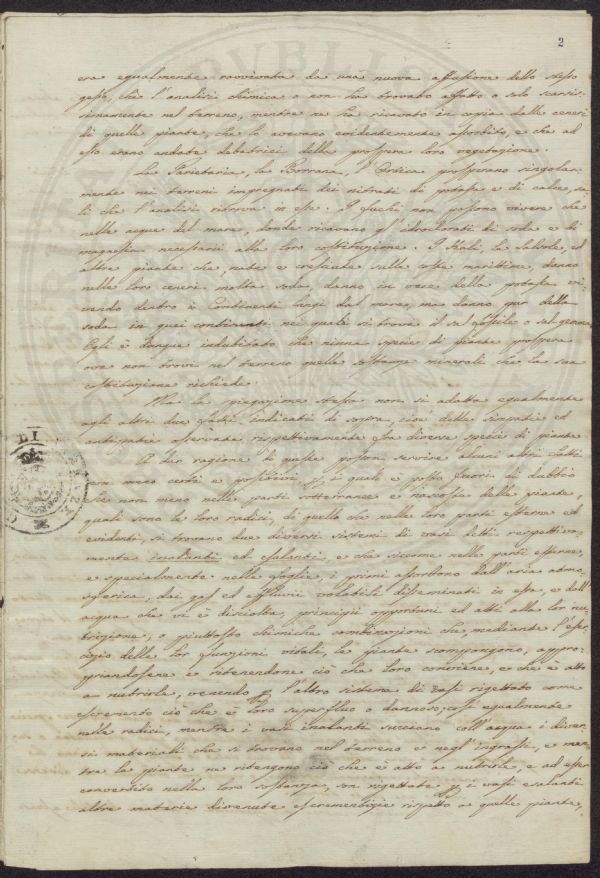 2
era egualmente ravvivata da una nuova affusione dello stesso
gesso, che l'analisi chimica o non ha trovato affatto o solo scarsis-
simamente nel terreno, mentre ne ha ricavato in copia dalle ceneri
di quelle piante, che lo avevano evidentemente assorbito, e che ad
esso erano andate debitrici della prospera loro vegetazione.
La Parietaria, la Borrana, l'Ortica prosperano singolar-
mente nei terreni impregnati dei nitrati di potassa e di calce, sa-
li che l'analisi ritrova in esse. I fuchi non possono vivere che
nelle acque del mare, donde ricavano gl'idroclorati di soda e di
magnesia necessarii alla loro costituzione. I Kali, le Salsole, ed
altre piante che, nate e cresciute sulle coste marittime, danno
nelle loro ceneri molta soda, danno in vece della potassa vi-
vendo dentro i Continenti lungi dal mare, ma danno pur della
soda in quei continenti nei quali si trova il sal fossile o sal gemma.
Egli è dunque indubitato che niuna specie di piante prospera
ove non trovi nel terreno quelle sostanze minerali che la sua
costituzione richiede.
Ma la spiegazione stessa non si adatta egualmente
agli altri due fatti indicati di sopra, cioè delle simpatie ed
antipatie osservate rispettivamente fra diverse specie di piante
A dar ragione di queste posson servire alcuni altri fatti
non meno certi e positivi, i quali è posto fuori di dubbio
che non meno nelle parti sotterranee e nascoste delle piante,
quali sono le loro radici, di quello che nelle loro parti esterne ed
evidenti, si trovano due diversi sistemi di vasi detti respettiva-
mente inalanti ed esalanti, e che siccome nelle parti esterne,
e specialmente nelle foglie, i primi assorbono dall'aria atmo-
sferica, dai gas ed effluvii volatili disseminati in essa, e dall'
acqua che vi è disciolta, principii opportuni ed atti alla lor nu-
trizione, o piuttosto chimiche combinazioni che, mediante l'eser-
cizio delle lor funzioni vitali, le piante scompongono, appro-
priandosene e ritenendone ciò che loro conviene, e che è atto
a nutrirle, venendo p l'altro sistema di vasi rigettato come
escremento ciò che è loro superfluo o dannoso; così egualmente
nelle radici, mentre i vasi inalanti succiano coll'acqua i diver-
si materiali che si trovano nel terreno e negl'ingrassi, e men-
tre le piante ne ritengono ciò che è atto a nutrirle, e ad esser
convertito nella loro sostanza, son rigettate p i vasi esalanti
altre materie divenute escrementizie rispetto a quelle piante,